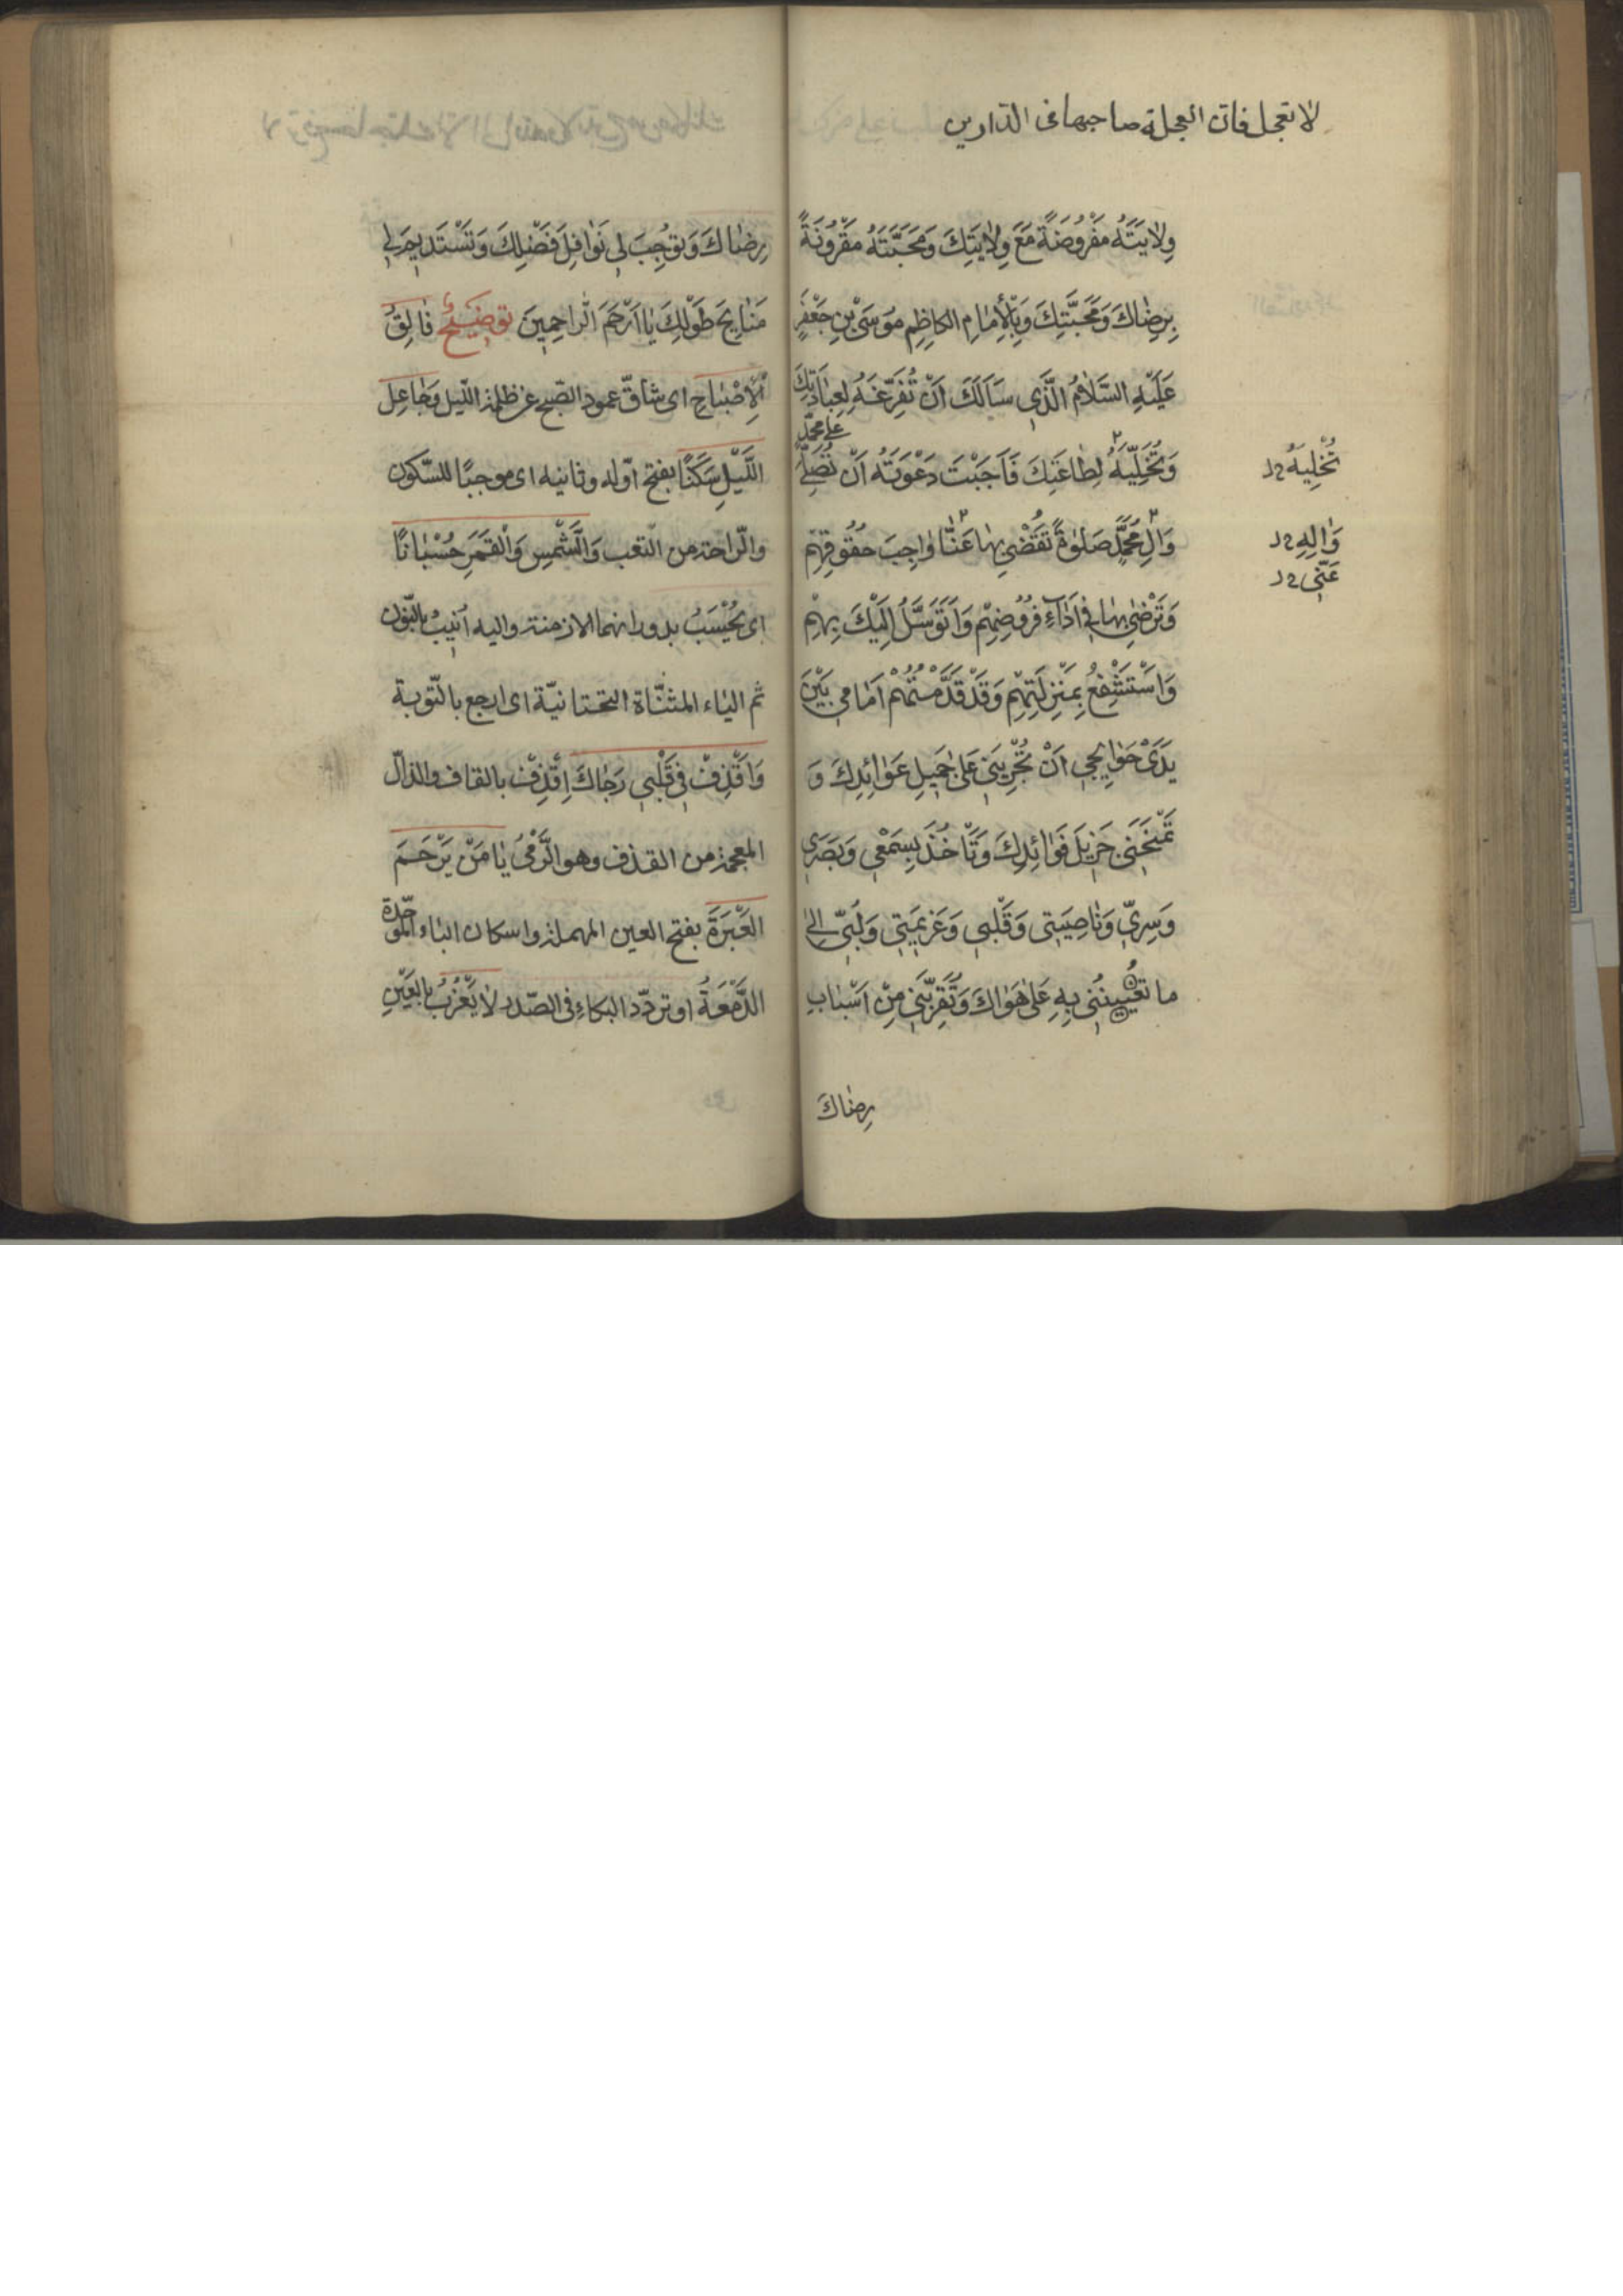 لا تعجل فان العجلة صاحبها فى الدارين
وِلايَتَهُ مَفْرُوضَةً مَعَ وِلايَتِكَ وَمَحَبَّتَهُ مَقْرُونَةً
بِرِضاكَ وَمَحَبَّتِكَ وَبِالْأِمامِ الكاظِمِ مُوسَى بْنِ جَعْفَرٍ
عَلَيْهِ السَّلامُ الَّذي سَأَلَكَ اَنْ تُفَرِّغَهُ لِعِبادَتِكَ
وَتُخَلِّيَهُ لِطاعَتِكَ فَاَجَبْتَ دَعْوَتَهُ اَنْ تُصَلِّيَ عَلى مُحَمَّدٍ
تُخْلِيَهُ
وَالِ مُحَمَّدٍ صَلوةً تَقْضي بِها عَنّا واجِبَ حُقُوقِهِمْ
وَالِهِ
عَنّي
وَتَرْضى بِها في اَداءِ فُرُوضِهِمْ وَاَتَوَسَّلُ اِلَيْكَ بِهِمْ
وَاَسْتَشْفِعُ بِمَنْزِلَتِهِمْ وَقَدْ قَدَّمْتُهُمْ اَمامي بَيْنَ
يَدَىْ حَوائِجي اَنْ تُجْرِيَني عَلى جَميلِ عَوائِدِكَ وَ
تَمْنَحَني جَزيلَ فَوائِدِكَ وَتَأْخُذَ بِسَمْعي وَبَصَري
وَسِرّي وَناصِيَتي وَقَلْبي وَعَزيمَتي وَلُبّي اِلى
ما تُعينُني بِهِ عَلى هَواكَ وَتُقَرِّبَني مِنْ اَسْبابِ
رِضاكَ
رِضاكَ وَتُوجِبَ لي نَوافِلَ فَضْلِكَ وَتَسْتَديمَ لي
مَنايِحَ طَوْلِكَ يا اَرْحَمَ الرّاحِمينَ توضيحٌ فالِقُ
الْأِصْباحِ اى شاقّ عمود الصّبح عن ظلمة اللّيل وَجاعِلَ
اللَّيْلِ سَكَنًا بفتح اوّله وثانيه اى موجبًا للسّكون
والرّاحة من التّعب وَالشَّمْسِ وَالْقَمَرِ حُسْبانًا
اى يُحْسَبُ بدورانهما الازمنة واليه اُنيبُ بالنّون
ثم الياء المثنّاة التحتانيّة اى ارجع بالتّوبة
وَاقْذِفْ في قَلْبي رَجاكَ اِقْذِفْ بالقاف والذالّ
المعجمة من القذف وهو الرَّمْىُ يا مَنْ يَرْحَمَ
العَبْرَةَ بفتح العين المهملة واسكان الباء الموحّدة
الدَّمْعَةُ او تردّد البكاءِ فى الصّدر لا يَعْزُبُ بالعَيْنِ